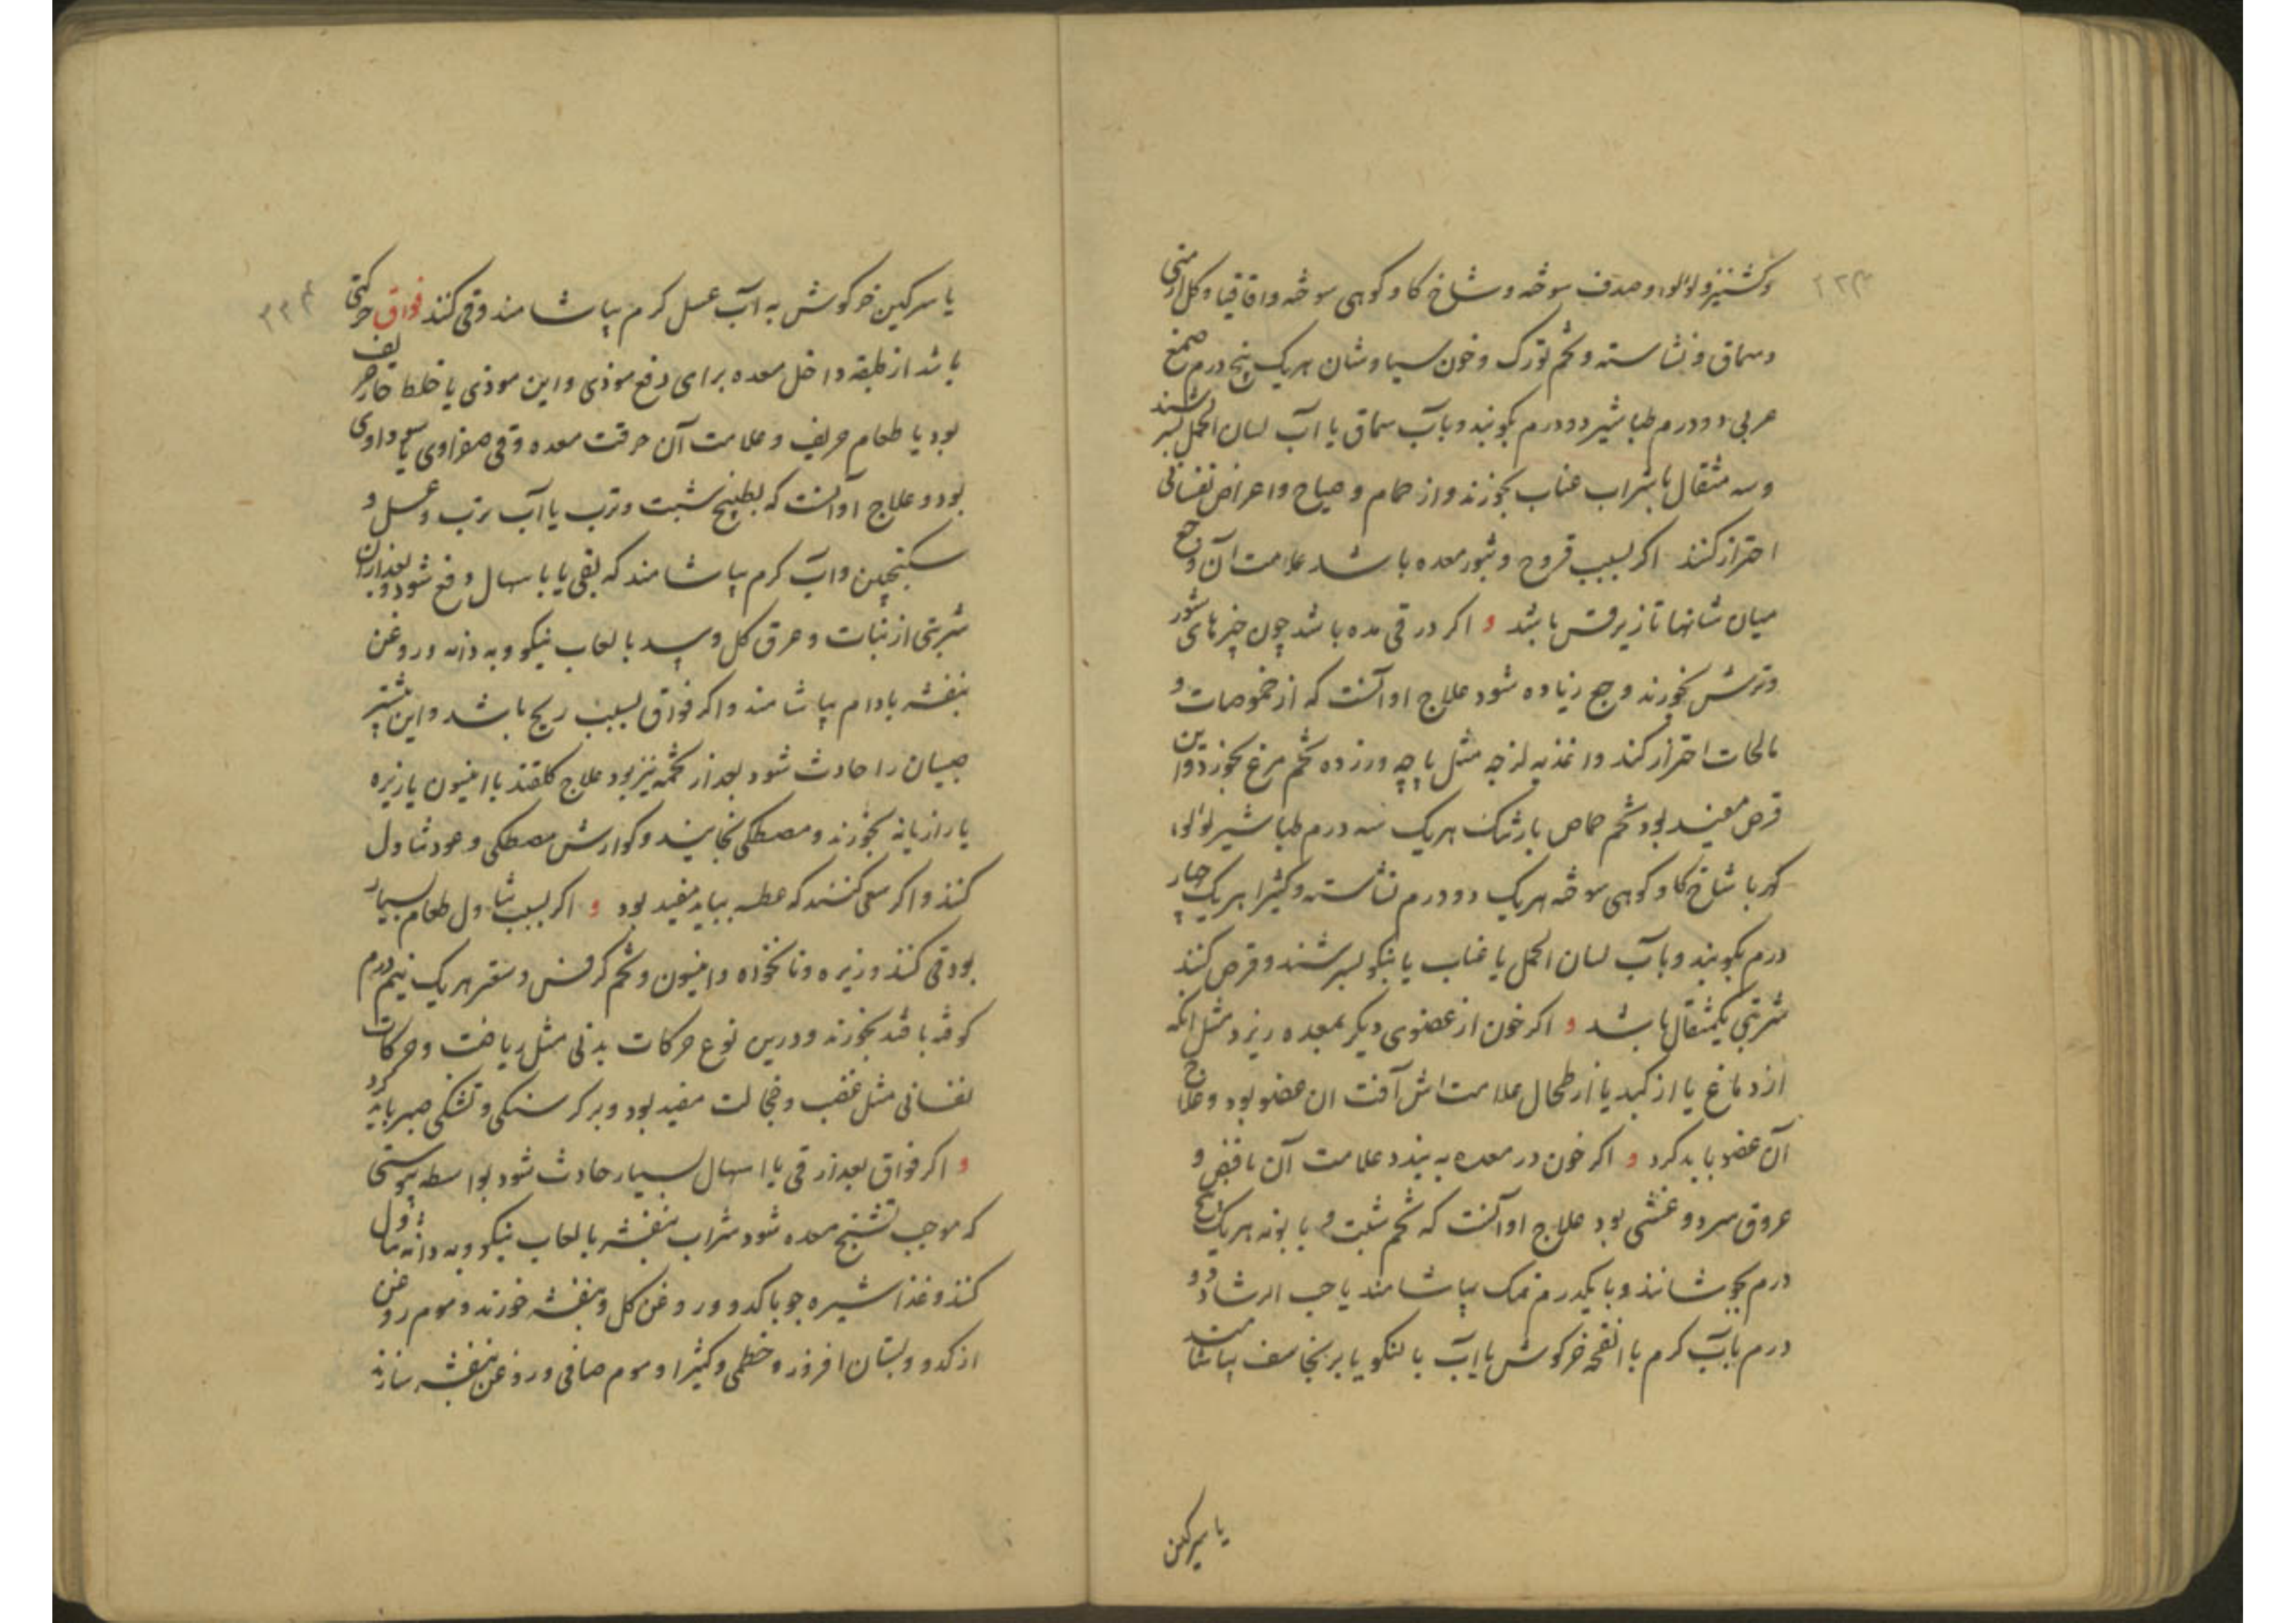 ۲۳۳
وکشنیز و لولو و صدف سوخته و شاخ کاو کوهی سوخته و اقاقیا و کل ارمنی
و سماق و نشاسته و تخم تورک و خون سیاوشان هریک پنج درم صمغ
عربی دو درم طباشیر دو درم بکوبند و بآب سماق یا آب لسان الحمل بسرشند
و سه مثقال با شراب عناب بخورند و از حمام و صیاح و اعراض نفسانی
احتراز کنند اکر بسبب قروح و بثور معده باشد علامت آن وجع
میان شانها تا زیر قس باشد و اکر در قی مده باشد چون چیزهای شور
و ترش بخورند وجع زیاده شود علاج او آنست که از حموضات و
مالحات احتراز کند و اغذیه لزجه مثل پاچه و زرده تخم مرغ بخورد و این
قرص مفید بود تخم حماض بارتنک هریک سه درم طباشیر لولو
کهربا شاخ کاو کوهی سوخته هریک دو درم نشاسته و کثیرا هریک چهار
درم بکوبند و بآب لسان الحمل یا عناب یا بنکو بسرشند و قرص کنند
شربتی یکمثقال باشد و اکر خون از عضوی دیکر بمعده ریزد مثل انکه
از دماغ یا از کبد یا از طحال علامت اش آفت ان عضو بود و علاج
آن عضو باید کرد و اکر خون در معده به بندد علامت آن نافض و
عروق سرد و غشی بود علاج او آنست که تخم شبت و بابونه هریک پنج
درم بجوشانند و با یکدرم نمک بپاشامند یا حب الرشاد دو
درم بآب کرم با انفحه خرکوش یا بآب بالنکو یا برنجاسف بپاشامند
یا سرکین
۲۳۴
یا سرکین خرکوش به آب عسل کرم بپاشامند و قی کنند فواق حرکتی
باشد از طبقه داخل معده برای دفع موذی و این موذی یا خلط حار حریف
بود یا طعام حریف و علامت آن حرقت معده و قی صفراوی یا سوداوی
بود و علاج او آنست که بطبیخ شبت و ترب یا آب ترب و عسل و
سکنجبین و آب کرم بپاشامند که بقی یا باسهال دفع شود و بعد از ان
شربتی از نبات و عرق کل و بید با لعاب نیکو و به دانه و روغن
بنفشه بادام بپاشامند و اکر فواق بسبب ریح باشد و این بیشتر
صبیان را حادث شود بعد از تخمه نیز بود علاج کلقند با انیسون یا زیره
یا رازیانه بخورند و مصطکی بخایند و کوارش مصطکی و عود تناول
کنند و اکر سعی کنند که عطسه بیاید مفید بود و اکر بسبب تناول طعام بسیار
بود قی کنند و زیره و نانخواه و انیسون و تخم کرفس و سعتر هریک نیم درم
کوفته با قند بخورند و درین نوع حرکات بدنی مثل ریاضت و حرکات
نفسانی مثل غضب و خجالت مفید بود و بر کرسنکی و تشنکی صبر باید کرد
و اکر فواق بعد از قی یا اسهال بسیار حادث شود بواسطه یبوستی
که موجب تشنج معده شود شراب بنفشه با لعاب نیکو و به دانه تناول
کنند و غذا شیره جو با کدو و روغن کل و بنفشه خورند و موم روغن
از کدو و بستان افروز و خطمی و کثیرا و موم صافی و روغن بنفشه سازند